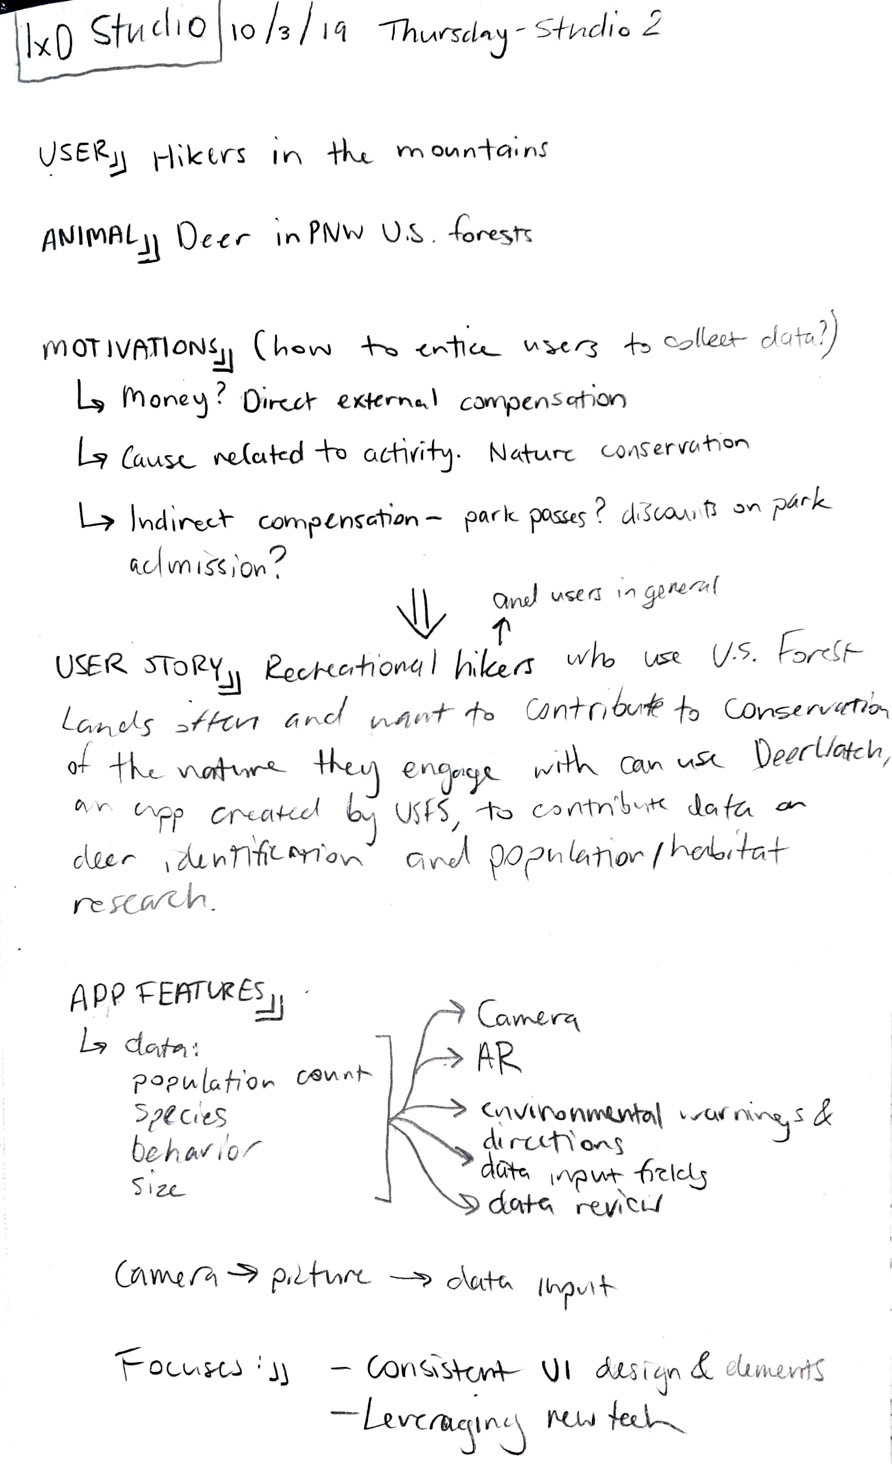 IxD Studio 10/3/19 Thursday - Studio 2
USER Hikers in the mountains
ANIMAL Deer in PNW U.S. forests
MOTIVATIONS (how to entice users to collect data?)
↳ Money? Direct external compensation
↳ Cause related to activity. Nature conservation
↳ Indirect compensation - park passes? discounts on park
admission?
⇓
and users in general
↑
USER STORY Recreational hikers who use U.S. Forest
Lands often and want to contribute to conservation
of the nature they engage with can use DeerWatch,
an app created by USFS, to contribute data on
deer identification and population/habitat
research.
APP FEATURES
↳ data:
population count
species
behavior
size
→ Camera
→ AR
→ environmental warnings &
directions
→ data input fields
→ data review
Camera → picture → data input
Focuses: - consistent UI design & elements
- Leveraging new tech